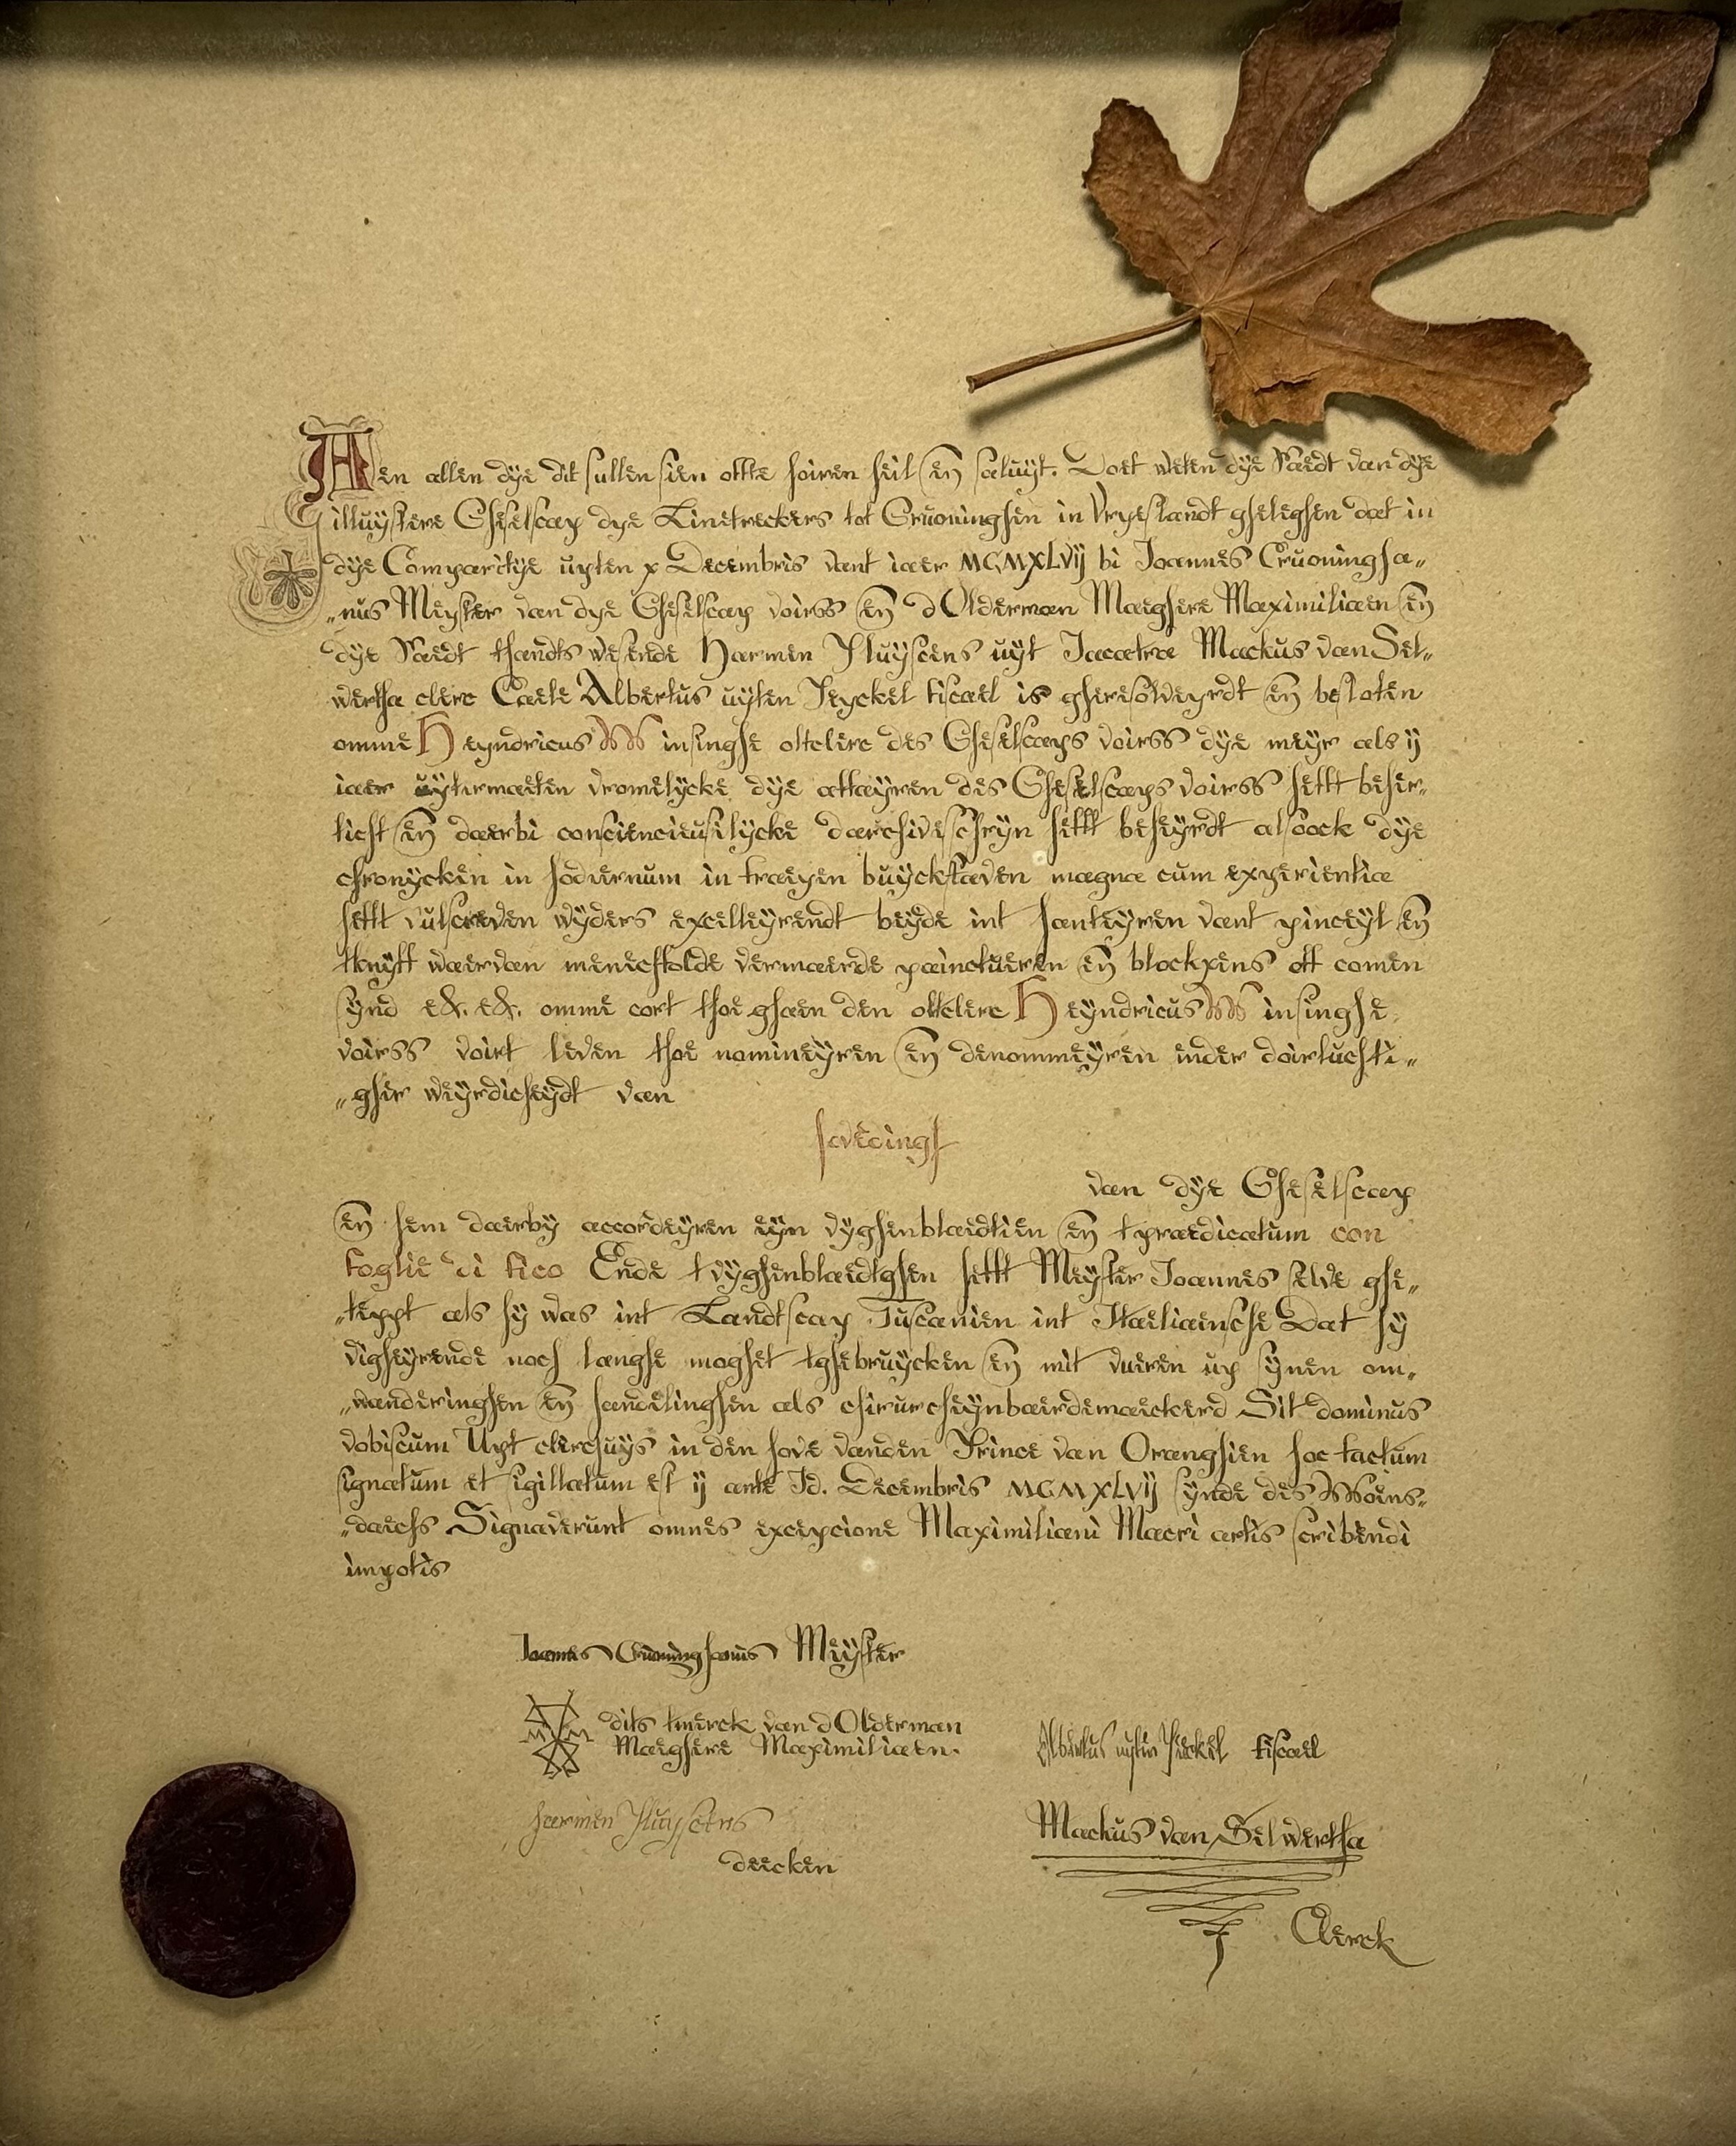 Aen allen dye dit sullen sien offte hoiren heil en̄ saluyt. Doet weten dye Raedt van dye
illuystere Gheselscap dye Linetreckers tot Gruoninghen in Vryeslandt gheleghen dat in
dye Comparitye upten x Decembris vant iaer MCMXLVIJ bi Joannes Cruoningha„
„nus Meyster van dye Gheselscap voirss en̄ dOlderman Maeghere Maximiliaen en̄
dye Raedt thandts wesende Harmen Pluyscens uyt Jacatra Mackus van Sel„
wertha clerc Caele Albertus uyten Jeyckel fiscael is gheresolveyrdt en̄ besloten
omme Heyndricus Winsinghe oltclerc des Gheselscaps voirss dye meyr als ij
iaer uytermaeten vromelycke dye affayren des Gheselscaps voirss hefft beher„
ticht en̄ daerbi consciencieuselycke darchiveschryn hefft beheyrdt alsoock dye
chronycken in hodiernum in fraeyen buyckstaven magna cum experientia
hefft vulscreven wyders excelleyrendt beyde int hanteyren vant pinceyl en̄
tknyff waervan menechfolde vermaerde paincturen en̄ blockpens off comen
synd etc. etc. omme cort thoe ghaen den oltclerc Heyndricus Winsinghe
voirss voirt leven thoe nomineyren en̄ denommeyren inder doirluchti„
„gher weyrdicheydt van
hoveling
van dye Gheselscap
en̄ hem daerby accordeyren eyn vyghenblaedtien en̄ tpraedicatum con
foglie di fico Ende tvyghenblaedtghen hefft Meyster Joannes selve ghe„
„teppt als hy was int Landtscap Tuscanien int Italiaensche Dat hy
digheyrende noch langhe moghet tghebruycken en̄ mit vueren up synen om„
„wanderinghen en̄ handelinghen als chirurcheynbaerdemaeckerd Sit dominus
vobiscum Uyt clerchuys in den hove vanden Prince van Oranghien hoc factum
signatum et sigillatum est ij ante Id. Decembris MCMXLVIJ synde des Woins„
„daechs Signaverunt omnes excepcione Maximiliani Macri artis scribendi
impotis
Joannes Cruoninghanus Meyster
dits tmerck van dOlderman
Maeghere Maximiliaen.
Albertus uyten Jeickel fiscael
harmen Pluyscens
deecken
Mackus van Selwertha
Clerck